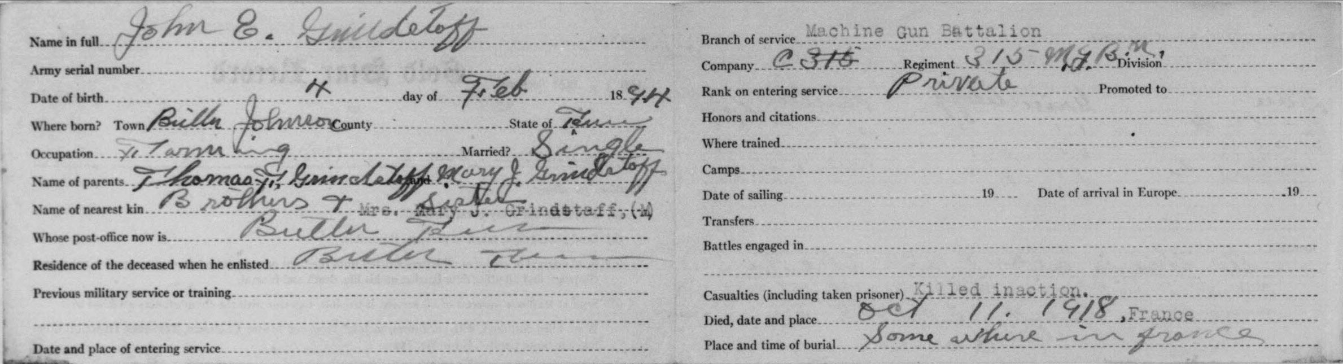 Name in full John E. Grindstoff
Army serial number
Date of birth 4 day of Feb 1894
Where born? Town Butler Johnson County State of Tenn
Occupation Farming Married? Single
Name of parents Thomas F. Grindstoff and Mary J. Grindstoff
Name of nearest kin Brothers & Sister Mrs. Mary J. Grindstaff, (M)
Whose post-office now is Butler Tenn
Residence of the deceased when he enlisted Butler Tenn
Previous military service or training
Date and place of entering service
Branch of service Machine Gun Battalion
Company C 315 Regiment 315 M.G. Bn, Division
Rank on entering service Private Promoted to
Honors and citations
Where trained
Camps
Date of sailing 19 Date of arrival in Europe 19
Transfers
Battles engaged in
Casualties (including taken prisoner) Killed inaction.
Died, date and place Oct 11. 1918, France
Place and time of burial Some where in france